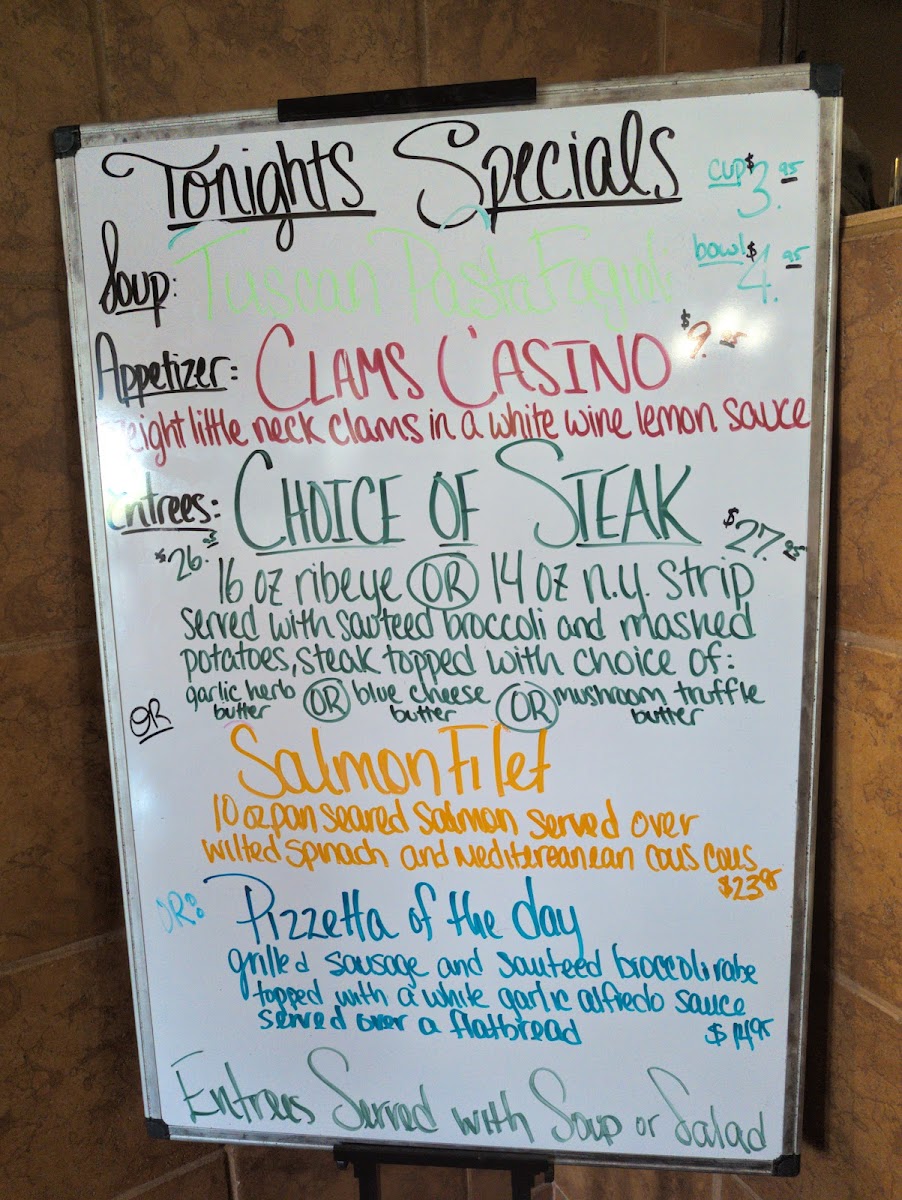 Tonights Specials
cup $3.95
Soup: Tuscan Pasta Fagioli
bowl $4.95
Appetizer: CLAMS CASINO $9.95
eight little neck clams in a white wine lemon sauce
Entrees: CHOICE OF STEAK
$26.95 $27.95
16 oz ribeye OR 14 oz n.y. strip
served with sauteed broccoli and mashed
potatoes, steak topped with choice of:
garlic herb butter OR blue cheese butter OR mushroom truffle butter
OR
Salmon Filet
10 oz pan seared salmon served over
wilted spinach and Mediterranean cous cous
$23.95
OR: Pizzetta of the day
grilled sausage and sauteed broccoli rabe
topped with a white garlic alfredo sauce
served over a flatbread $14.95
Entrees Served with Soup or Salad